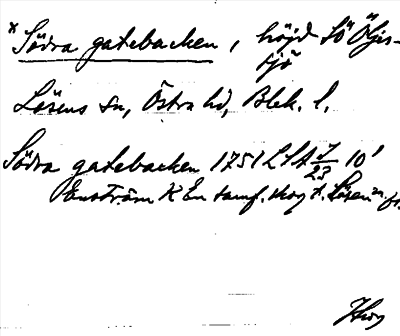 * Södra gatebacken, höjd SÖ Öljersjö
Lösens sn, Östra hd, Blek. l.
Södra gatebacken 1751 LSA J/23 10¹
Enström K En saml. skog t. Lösen